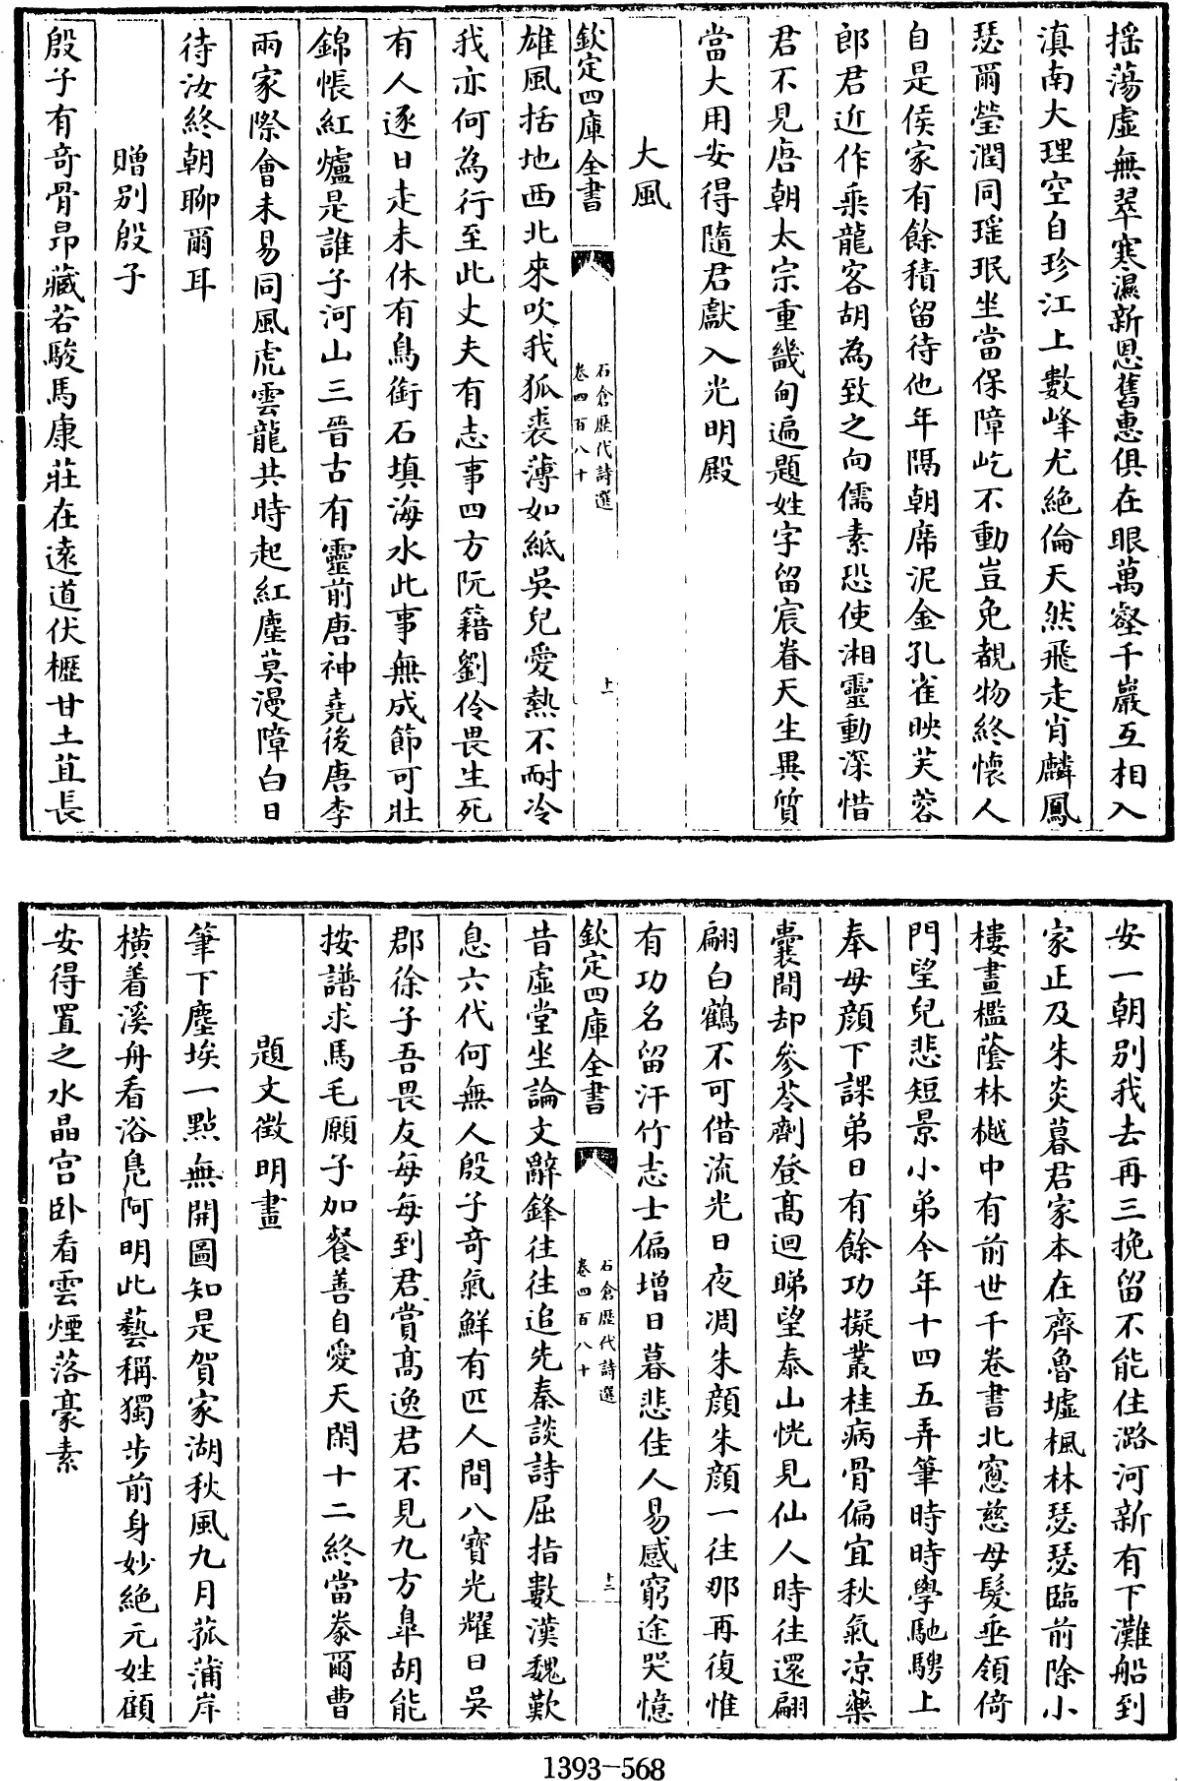 搖蕩虛無翠寒濕新恩舊惠俱在眼萬壑千巖互相入
滇南大理空自珍江上數峰尤絶倫天然飛走肖麟鳳
瑟爾瑩潤同瑤珉坐當保障屹不動豈免覩物終懷人
自是侯家有餘積留待他年隔朝席泥金孔雀映芙蓉
郎君近作乗龍客胡為致之向儒素恐使湘靈動深惜
君不見唐朝太宗重畿甸遍題姓字留宸眷天生異質
當大用安得隨君獻入光明殿
大風
欽定四庫全書
石倉歴代詩選
卷四百八十
十一
雄風括地西北來吹我狐裘薄如紙吳兒愛熱不耐冷
我亦何為行至此丈夫有志事四方阮籍劉伶畏生死
有人逐日走未休有鳥銜石填海水此事無成節可壯
錦帳紅爐是誰子河山三晉古有靈前唐神堯後唐李
兩家際會未易同風虎雲龍共時起紅塵莫漫障白日
待汝終朝聊爾耳
贈别殷子
殷子有竒骨昻藏若駿馬康莊在逺道伏櫪甘土苴長
安一朝别我去再三挽留不能住潞河新有下灘船到
家正及朱炎暮君家本在齊魯墟楓林瑟瑟臨前除小
樓畫檻蔭林樾中有前世千卷書北窻慈母髮垂領倚
門望兒悲短景小弟今年十四五弄筆時時學馳騁上
奉母顔下課弟日有餘功擬叢桂病骨偏宜秋氣凉藥
囊閒却參苓劑登髙迴睇望泰山恍見仙人時往還翩
翩白鶴不可借流光日夜凋朱顔朱顔一往那再復惟
有功名留汗竹志士偏增日暮悲佳人易感窮途哭憶
欽定四庫全書
石倉歴代詩選
卷四百八十
十二
昔虛堂坐論文辭鋒往往追先秦談詩屈指數漢魏歎
息六代何無人殷子竒氣鮮有匹人間八寶光耀日吳
郡徐子吾畏友每每到君賞髙逸君不見九方臯胡能
按譜求馬毛願子加餐善自愛天閑十二終當豢爾曹
題文徴明畫
筆下塵埃一點無開圖知是賀家湖秋風九月菰蒲岸
橫着溪舟看浴鳧阿明此藝稱獨步前身妙絶元姓顧
安得置之水晶宫卧看雲煙落豪素
1393-568